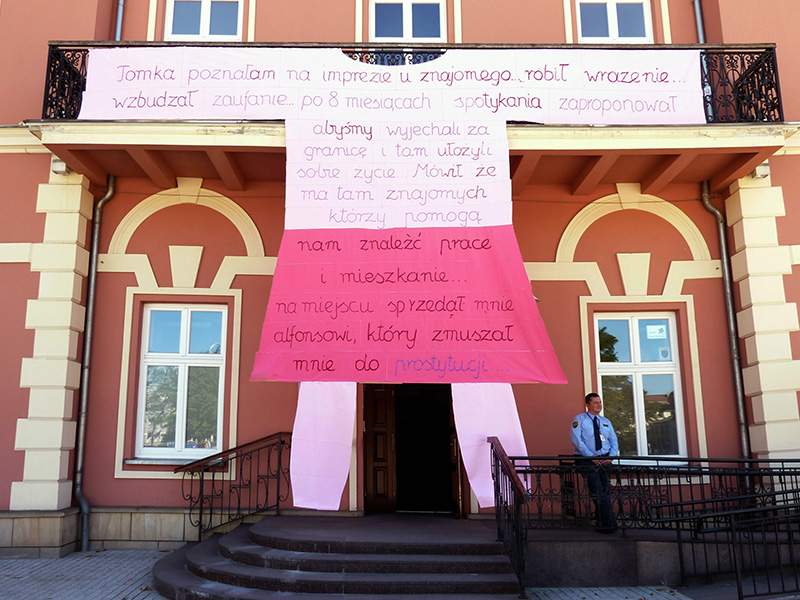 Tomka poznałam na imprezie u znajomego... robił wrażenie...
wzbudzał zaufanie... po 8 miesiącach spotykania zaproponował
abyśmy wyjechali za
granicę i tam ułożyli
sobie życie. Mówił że
ma tam znajomych
którzy pomogą
nam znaleźć pracę
i mieszkanie...
na miejscu sprzedał mnie
alfonsowi, który zmuszał
mnie do prostytucji...